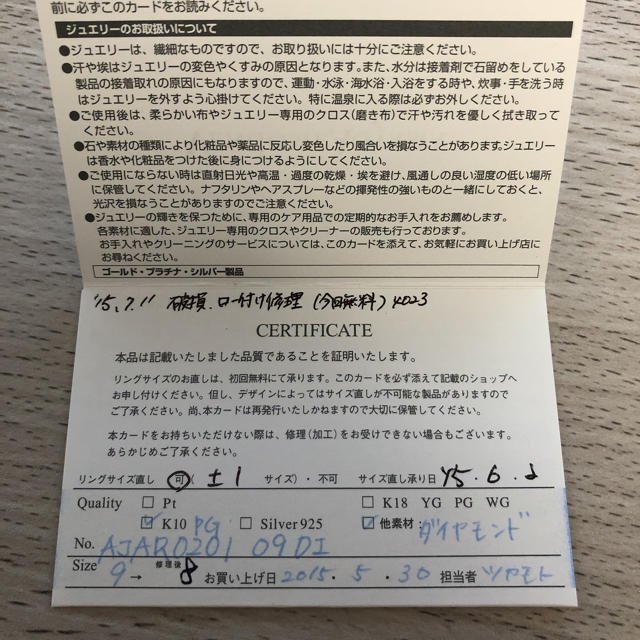 前に必ずこのカードをお読みください。
ジュエリーのお取扱いについて
●ジュエリーは、繊細なものですので、お取り扱いには十分にご注意ください。
●汗や埃はジュエリーの変色やくすみの原因となります。また、水分は接着剤で石留めをしている
製品の接着取れの原因にもなりますので、運動・水泳・海水浴・入浴をする時や、炊事・手を洗う時
はジュエリーを外すよう心掛けてください。特に温泉に入る際は必ずお外しください。
●ご使用後は、柔らかい布やジュエリー専用のクロス(磨き布)で汗や汚れを優しく拭き取って
ください。
●石や素材の種類により化粧品や薬品に反応し変色したり風合いを損なうことがあります。ジュエリー
は香水や化粧品をつけた後に身につけるようにしてください。
●ご使用にならない時は直射日光や高温・過度の乾燥・埃を避け、風通しの良い湿度の低い場所
に保管してください。ナフタリンやヘアスプレーなどの揮発性の強いものと一緒にしておくと、
光沢を損なうことがありますのでご注意ください。
●ジュエリーの輝きを保つために、専用のケア用品での定期的なお手入れをお薦めします。
各素材に適した、ジュエリー専用のクロスやクリーナーの販売も行っております。
お手入れやクリーニングのサービスについては、このカードを添えて、お気軽にお買い上げ店に
お尋ねください。
ゴールド・プラチナ・シルバー製品
'15.7.11 破損.ロー付け修理(今回無料)4023
CERTIFICATE
本品は記載いたしました品質であることを証明いたします。
リングサイズのお直しは、初回無料にて承ります。このカードを必ず添えて記載のショップへ
お申し付けください。但し、デザインによってはサイズ直しが不可能な製品がありますので
ご了承ください。尚、本カードは再発行いたしかねますので大切に保管してください。
本カードをお持ちいただけない際は、修理(加工)をお受けできない場合もございます。
あらかじめご了承ください。
リングサイズ直し 可( ±1 サイズ)・不可 サイズ直し承り日 '15.6.
Quality □ Pt □ K18 YG PG WG
☑ K10 PG □ Silver 925 ☑ 他素材: ダイヤモンド
No. AJAR0201 09DI
Size 9 → 修理後 8 お買い上げ日 2015.5.30 担当者 ツヤモト